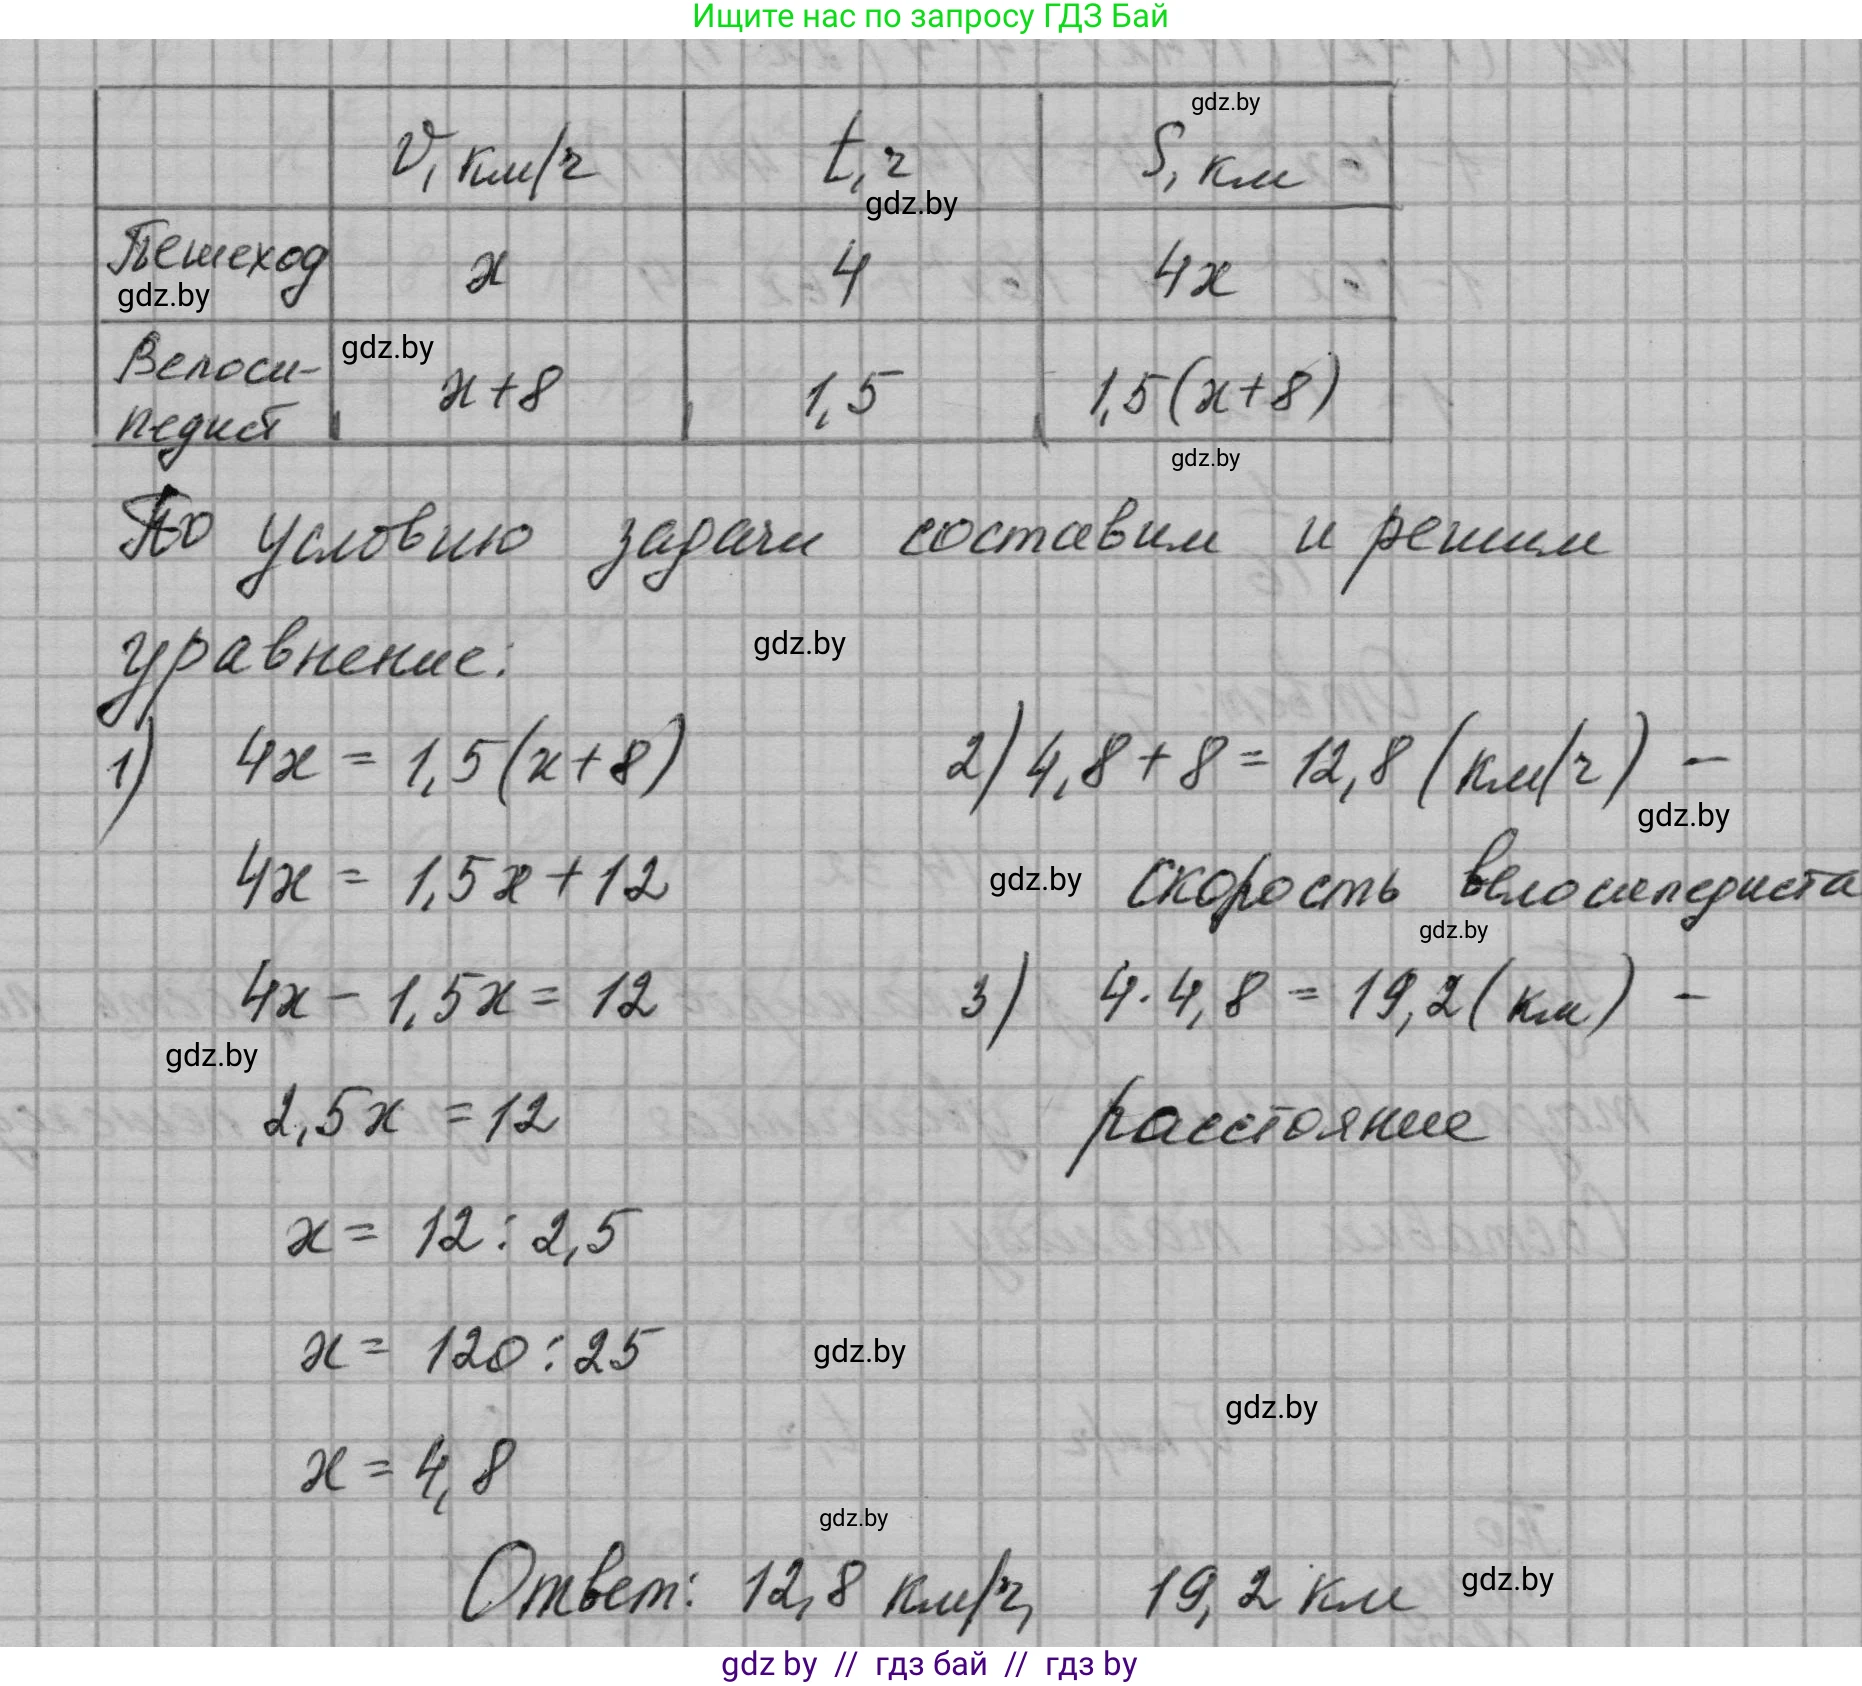 Ищите нас по запросу ГДЗ Бай
gdz.by
v, км/ч t, ч S, км
gdz.by
Пешеход x 4 4x
gdz.by
gdz.by
Велоси-
педист x+8 1,5 1,5(x+8)
gdz.by
По условию задачи составим и решим
уравнение:
gdz.by
1) 4x = 1,5(x+8)
4x = 1,5x+12
4x - 1,5x = 12
gdz.by
2,5x = 12
x = 12 : 2,5
x = 120 : 25
x = 4,8
2) 4,8+8 = 12,8 (км/ч) -
gdz.by
gdz.by
скорость велосипедиста
gdz.by
3) 4·4,8 = 19,2 (км) -
расстояние
gdz.by
gdz.by
gdz.by
Ответ: 12,8 км/ч, 19,2 км
gdz.by
gdz by // гдз бай // гдз by